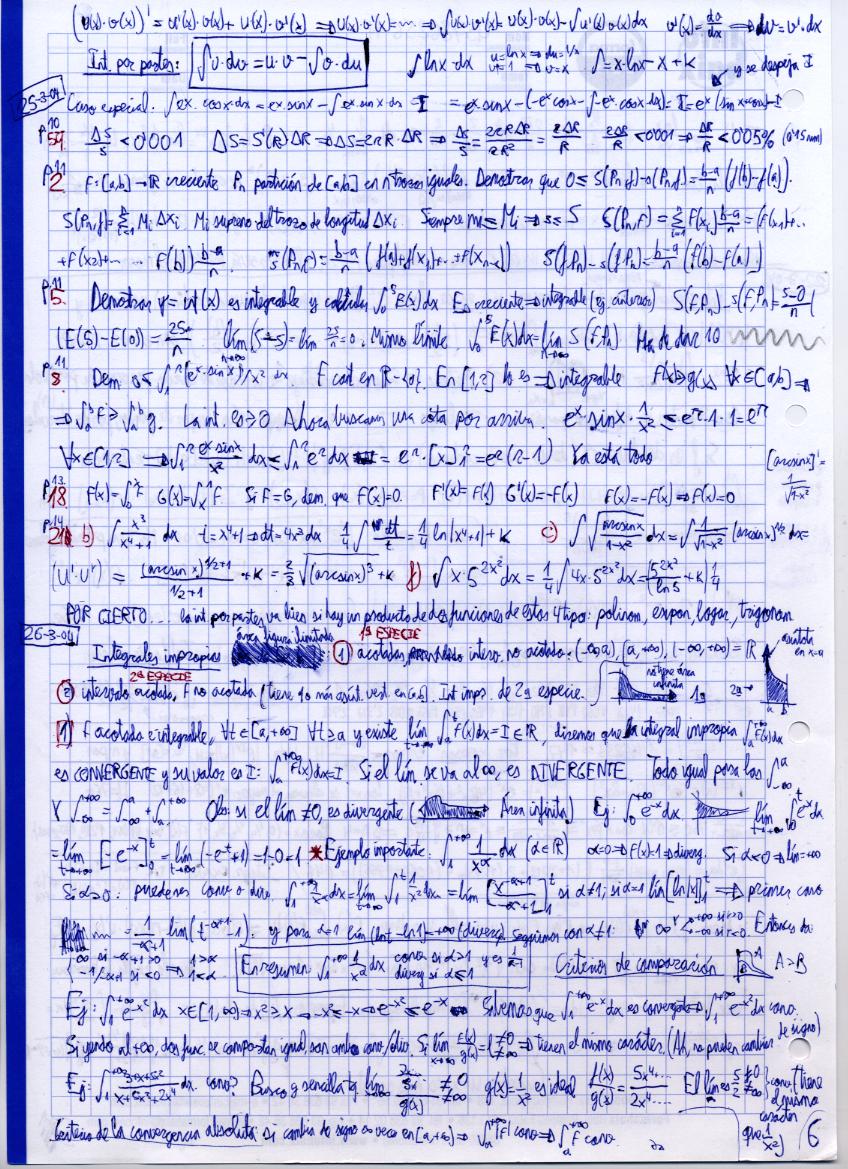 (u(x)·v(x))' = u'(x)·v(x) + u(x)·v'(x) ⇒ u(x)·v'(x) = ... ⇒ ∫u(x)·v'(x) = u(x)·v(x) - ∫u'(x)·v(x)dx v'(x) = dv/dx ⇒ dv = v'·dx
Int. por partes: ∫u·dv = u·v - ∫v·du ∫lnx·dx u=lnx ⇒ du=1/x v'=1 ⇒ v=x ∫=x·lnx - x + K y se despeja I
25-3-04 Caso especial. ∫e^x·cosx·dx = e^x·sinx - ∫e^x·sinx·dx = I = e^x·sinx - (-e^x cosx - ∫-e^x·cosx·dx) = I = e^x(sinx+cosx) - I
p.10 54. ΔS/S < 0'001 ΔS = S'(R)·ΔR ⇒ ΔS = 2πR·ΔR ⇒ ΔS/S = 2πRΔR/πR² = 2ΔR/R 2ΔR/R < 0'001 ⇒ ΔR/R < 0'05% (0'15mm)
p.11 2 F:[a,b]→ℝ creciente Pn partición de [a,b] en n trozos iguales. Demostrar que 0 ≤ S(Pn,f) - s(Pn,f) = b-a/n (f(b)-f(a)).
S(Pn,f) = Σ Mi ΔXi Mi supremo del trozo de longitud ΔXi Siempre mi ≤ Mi ⇒ s ≤ S S(Pn,F) = Σ F(xi) b-a/n = (F(x1)+...
+F(x2)+... F(b)) b-a/n. s(Pn,F) = b-a/n (f(a)+f(x1)+...+F(xn-1)) S(f,Pn) - s(f,Pn) = b-a/n (f(b)-f(a))
p.11 5. Demostrar y=int(x) es integrable y calcular ∫₀⁵E(x)dx E creciente ⇒ integrable (ej. anterior) S(F,Pn) - s(F,Pn) = 5-0/n (
(E(5)-E(0)) = 25/n lím(S-s) = lím 25/n = 0. Mismo límite ∫₀⁵E(x)dx = lím S(f,Pn) Ha de dar 10
p.11 8. Dem 0 ≤ ∫₁^π (e^x·sinx)/x² dx. F cont en ℝ-{0}. En [1,π] lo es ⇒ integrable F(x) ≥ g(x) ∀x∈[a,b] ⇒
⇒ ∫ₐᵇF ≥ ∫ₐᵇg. La int. es ≥0. Ahora buscamos una cota por arriba. e^x·sinx·1/x² ≤ e^π·1·1 = e^π
∀x∈[1,π] ⇒ ∫₁^π e^x sinx/x² dx ≤ ∫₁^π e^π dx = e^π·[x]₁^π = e^π(π-1) Ya está todo [arcsinx]' = 1/√(1-x²)
p.13 18. F(x) = ∫₀ˣF G(x) = ∫ₓ¹F Si F=G, dem. que F(x)=0. F'(x)=F(x) G'(x)=-F(x) F(x)=-F(x) ⇒ F(x)=0
p.14 21 b) ∫ x³/(x⁴+1) dx t=x⁴+1 ⇒ dt=4x³dx 1/4 ∫ dt/t = 1/4 ln|x⁴+1| + K c) ∫√(arcsinx/1-x²) dx = ∫ 1/√(1-x²) (arcsinx)^1/2 dx =
(U'·U^r) = (arcsin x)^(1/2+1)/(1/2+1) + K = 2/3 √(arcsinx)³ + K f) ∫x·5^(2x²)dx = 1/4 ∫4x·5^(2x²)dx = (5^(2x²)/ln5 + K) 1/4
POR CIERTO... la int por partes va bien si hay un producto de dos funciones de estos 4 tipo: polinom, expon, logar, trigonom
26-3-04 Integrales impropias área figura ilimitada : 1ª ESPECIE ① acotadas, interv. no acotado: (-∞,a), (a,+∞), (-∞,+∞) = ℝ asíntota en x=a
2ª ESPECIE ② intervalo acotado, F no acotada (tiene 1 o más asínt. vert. en (a,b)). Int impr. de 2ª especie. no tiene área infinita 1ª 2ª → a b
1 F acotada e integrable, ∀t∈[a,+∞] ∀t≥a y existe lím ∫ₐᵗf(x)dx = I∈ℝ, diremos que la integral impropia ∫ₐ^+∞ f(x)dx
es CONVERGENTE y su valor es I: ∫ₐ^+∞ F(x)dx = I. Si el lím. se va al ∞, es DIVERGENTE. Todo igual para las ∫₋∞^a
Y ∫₋∞^+∞ = ∫₋∞^a + ∫ₐ^+∞ Obs: si el lím ≠0, es divergente ( Área infinita) Ej: ∫₀^+∞ e^-x dx lím ∫₀ᵗ e^-x dx
= lím [-e^-x]₀ᵗ = lím (-e^-t+1) = 1-0 = 1 * Ejemplo importante: ∫₁^+∞ 1/x^α dx (α∈ℝ) α=0 ⇒ f(x)=1 ⇒ diverg. Si α<0 ⇒ lím=+∞
Si α>0: pueden ser conv o div. ∫₁^+∞ 1/x^α dx = lím ∫₁ᵗ 1/x^α dx = lím [x^(-α+1)/(-α+1)]₁ᵗ si α≠1; si α=1 lím [ln|x|]₁ᵗ ⇒ primer caso
lím = 1/(-α+1) lím (t^(-α+1) - 1). y para α=1 lím (lnt - ln1) = +∞ (diverg). Seguimos con α≠1: ∞^r +∞ si r>0 -∞ si r<0 Entonces da
∞ si -α+1>0 -1/(-α+1) si <0 ⇒ 1>α 1<α. En resumen ∫₁^+∞ 1/x^α dx conv si α>1 y es 1/(α-1) diverg si α≤1 Criterios de comparación A B A>B
Ej: ∫₁^+∞ e^-x² dx x∈[1,∞) ⇒ x²≥x ⇒ -x²≤-x ⇒ e^-x² ≤ e^-x Sabemos que ∫₁^+∞ e^-x dx es convergente ⇒ ∫₁^+∞ e^-x² dx conv.
Si yendo al +∞, dos func. se comportan igual, son ambas conv/div. Si lím f(x)/g(x) = l ≠0 ≠∞ ⇒ tienen el mismo carácter. (Ah, no pueden cambiar de signo)
Ej: ∫₁^+∞ dx. conv? Busco g sencilla tq lím /g(x) ≠0 ≠∞ g(x)=1/x² es ideal f(x)/g(x) = 5x⁴.../2x⁴... El lím es 5/2 ≠0 ≠∞ conv (tiene el mismo carácter que 1/x²)
Criterio de la convergencia absoluta: si cambia de signo a veces en [a,+∞) ⇒ ∫ₐ^+∞ |F| conv ⇒ ∫ₐ^+∞ F conv. 6